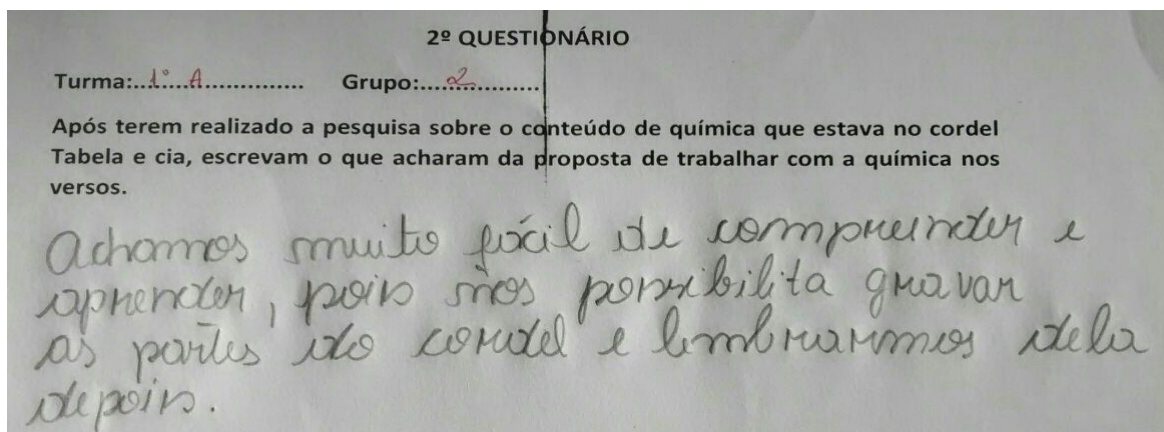 2º QUESTIONÁRIO
Turma:...1º...A............... Grupo:......2...........
Após terem realizado a pesquisa sobre o conteúdo de química que estava no cordel
Tabela e cia, escrevam o que acharam da proposta de trabalhar com a química nos
versos.
Achamos muito fácil de compreender e
aprender, pois nos possibilita gravar
as partes do cordel e lembrarmos dela
depois.